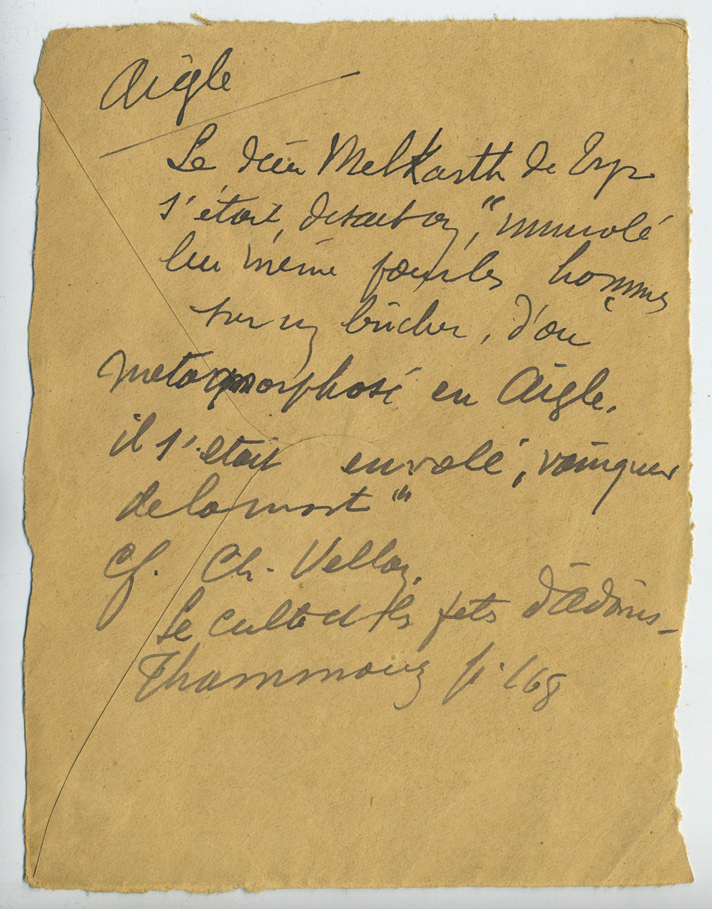 Aigle
Le dieu Melkarth de Tyr
s'était, disait on, "immolé
lui même pour les hommes
sur un bûcher, d'où
métamorphosé en Aigle,
il s'était envolé, vainqueur
de la mort"
Cf. Ch. Vellay,
Le culte et les fêts d'Adonis-
Thammouz p. 168